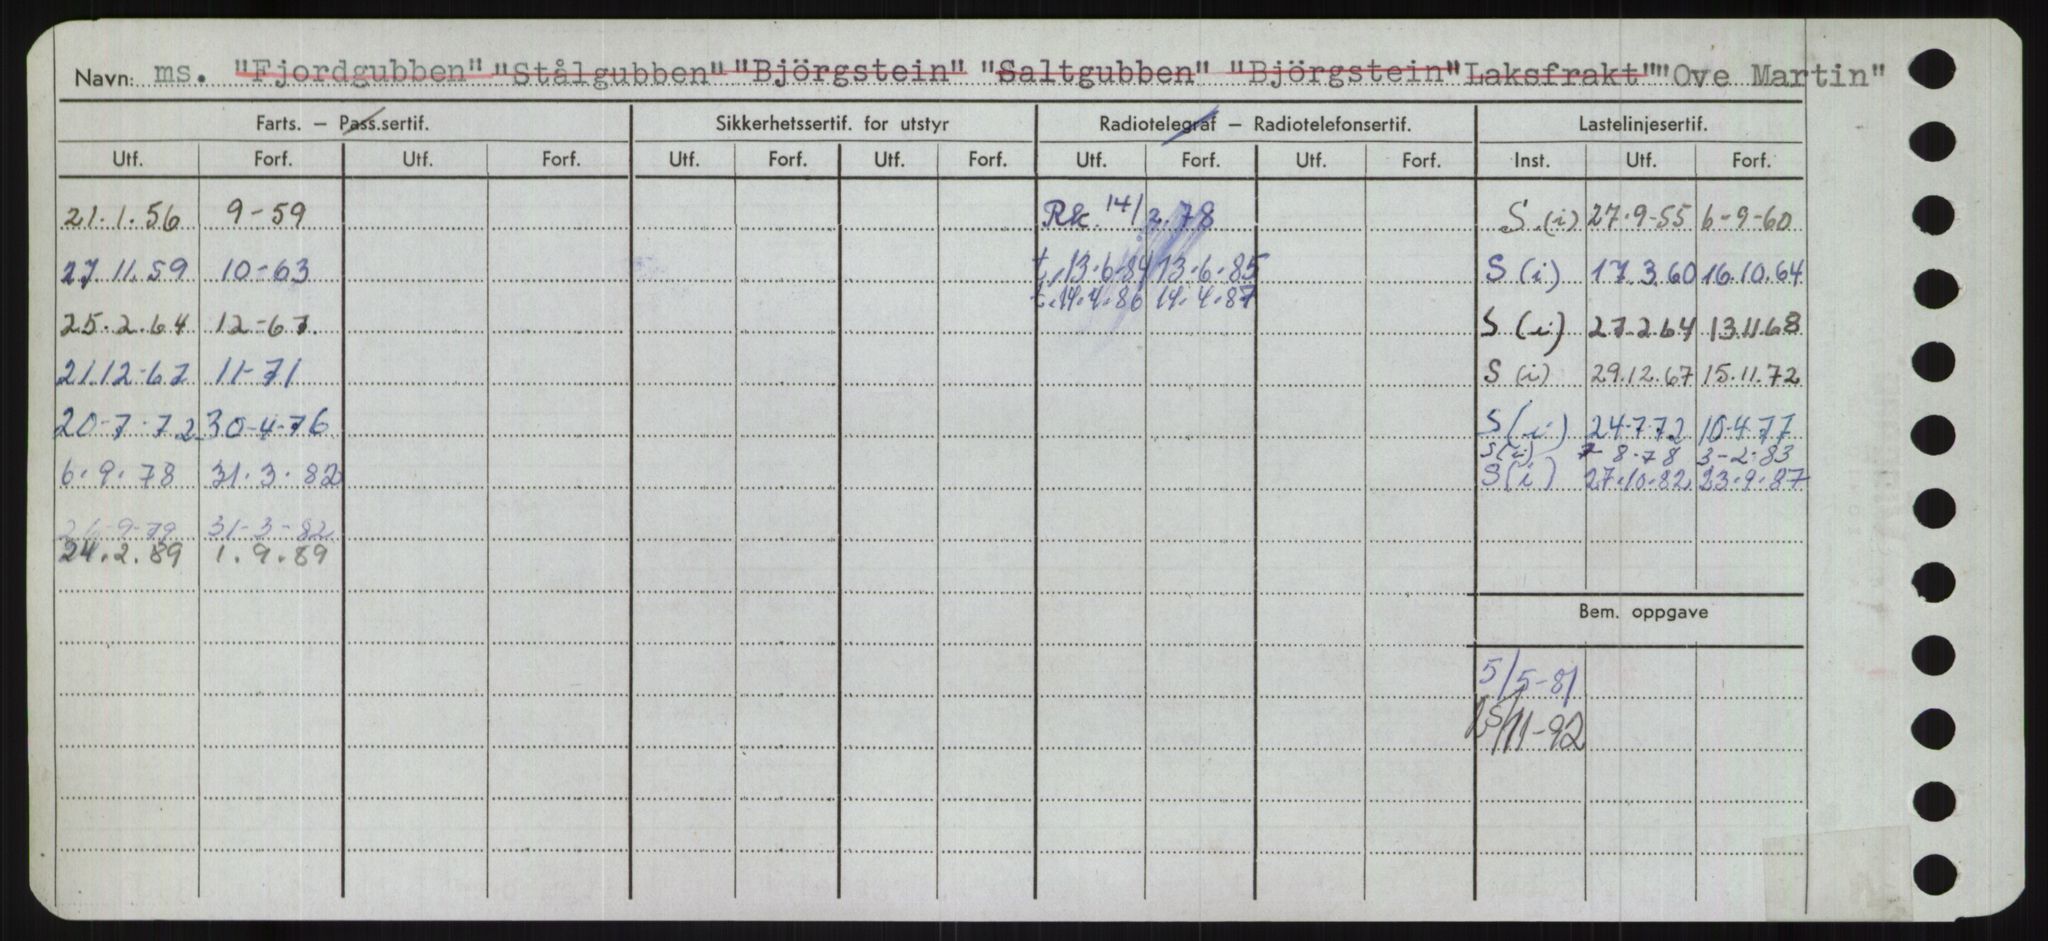 Navn: ms. "Fjordgubben" "Stålgubben" "Björgstein" "Saltgubben" "Björgstein" Laksfrakt" "Ove Martin"
Farts. – Pass.sertif. Sikkerhetssertif. for utstyr Radiotelegraf – Radiotelefonsertif. Lastelinjesertif.
Utf. Forf. Utf. Forf. Utf. Forf. Utf. Forf. Utf. Forf. Utf. Forf. Inst. Utf. Forf.
21.1.56 9-59 Rk. 14/2.78 S.(i) 27.9-55 6-9-60
27 11.59 10-63 t.13.6.84 13.6.85 S (i) 17.3.60 16.10.64
t.14.4.86 14.4.87
25.2.64 12-67. S (i) 27.2.64 13.11.68
21.12-67 11-71 S (i) 29.12.67 15.11.72
20-7-72 30-4-76 S (i) 24-7.72 10.4.77
S(i) 7-8-78 3-2-83
6.9.78 31.3.82 S(i) 27.10.82 23.9.87
26-9-79 31-3-82
24.2.89 1.9.89
Bem. oppgave
5/5-81
25/11-92